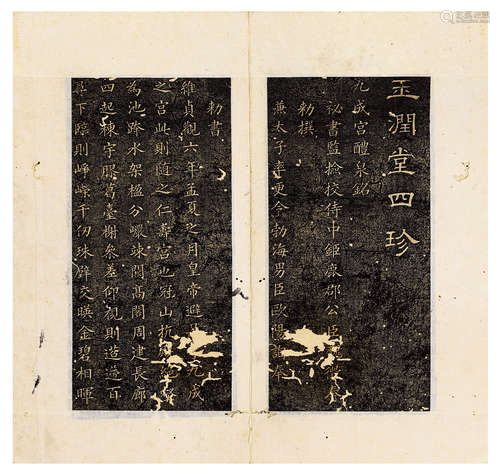 玉潤堂四珍
九成宮醴泉銘
祕書監檢校侍中鉅鹿郡公臣
勅撰
兼太子率更令勃海男臣歐陽
勅書
維貞觀六年孟夏之月皇帝避九成
之宮此則隨之仁壽宮也冠山抗
為池跨水架楹分巖竦闕高閣周建長廊
四起棟宇膠葛臺榭參差仰視則迢遰百
尋下臨則崢嶸千仞珠璧交暎金碧相暉